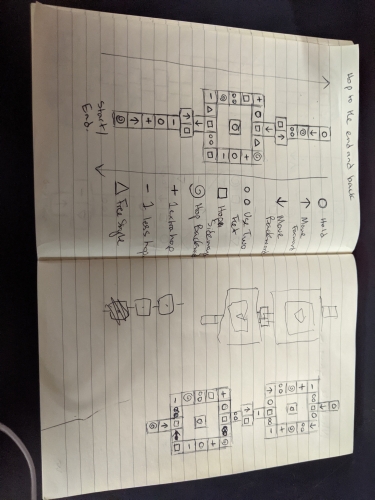 Hop to the end and back
O Hold
↑ Move Forward
↓ Move Backward
O O Use Two Feet
□ Hop Sideways
Hop Backward
+ 1 extra hop
- 1 less hop
△ Free Style
Start/
End.